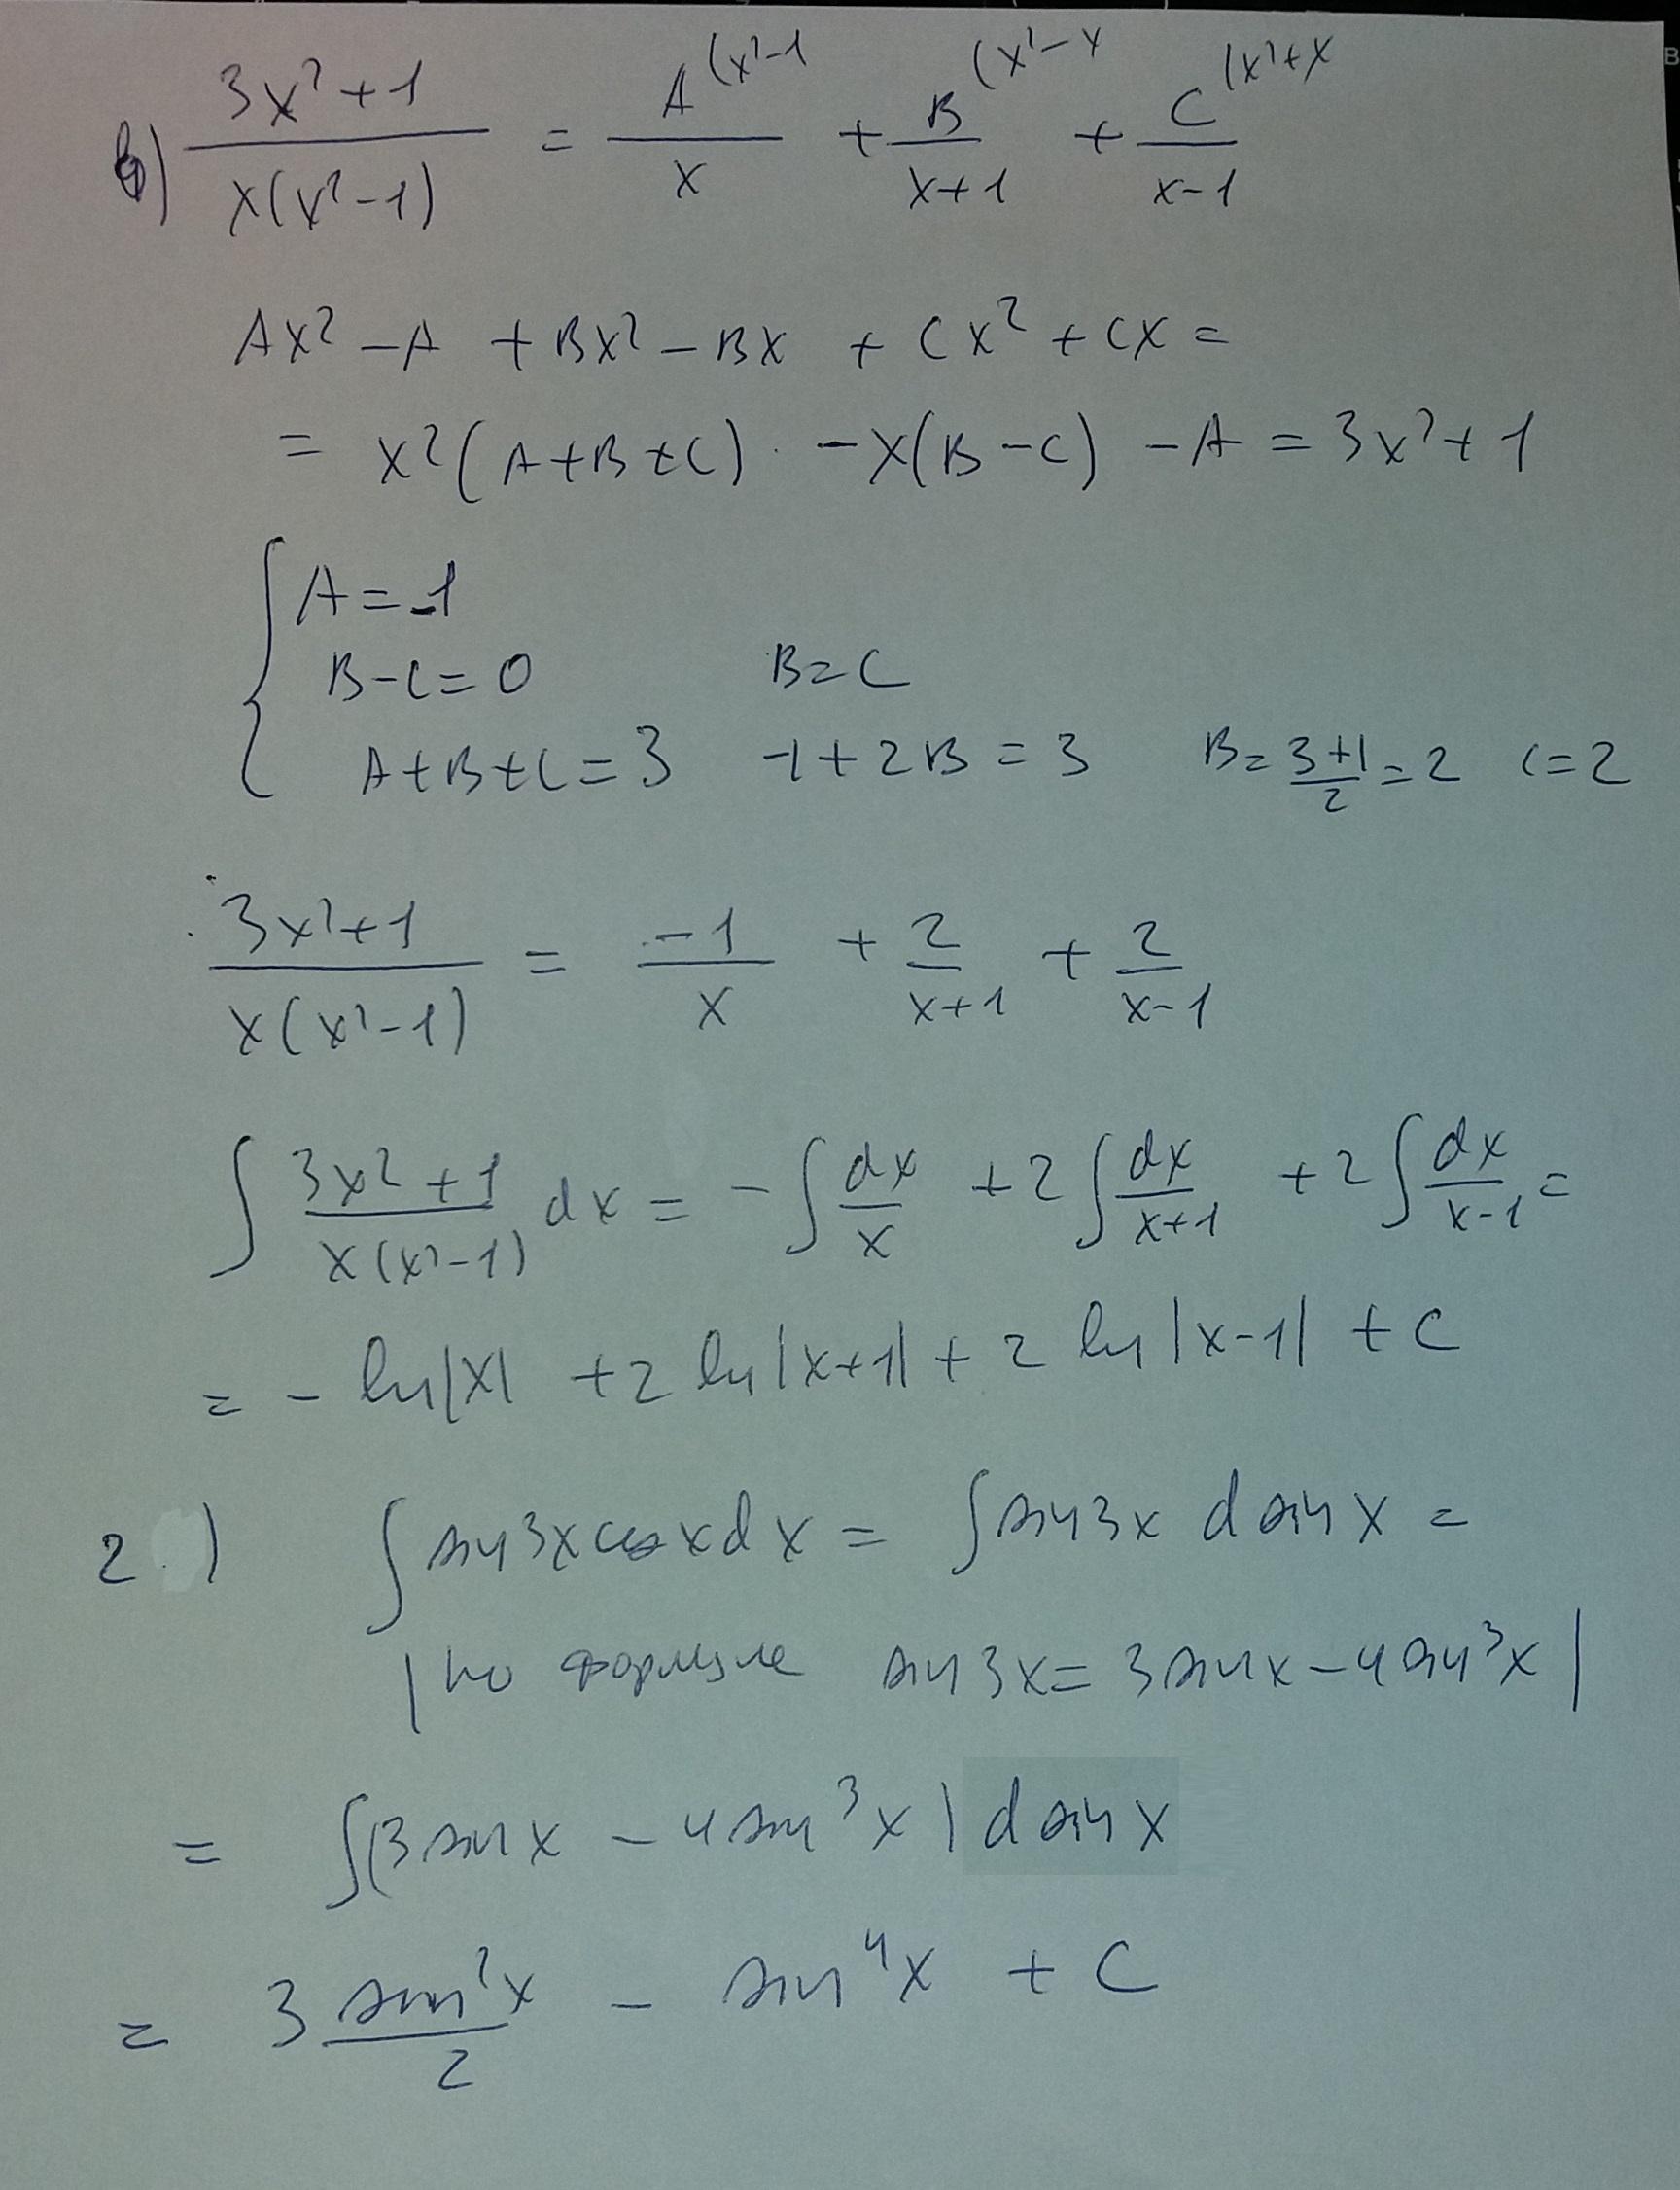 в) (3x²+1)/(x(x²-1)) = A(x²-1/x + B(x²-x/(x+1) + C(x²+x/(x-1)
Ax² - A + Bx² - Bx + Cx² + Cx =
= x²(A+B+C) - x(B-C) - A = 3x²+1
{ A = -1
B-C=0 B=C
A+B+C=3 -1+2B=3 B=(3+1)/2=2 C=2
(3x²+1)/(x(x²-1)) = -1/x + 2/(x+1) + 2/(x-1)
∫ (3x²+1)/(x(x²-1)) dx = -∫ dx/x + 2∫ dx/(x+1) + 2∫ dx/(x-1) =
= - ln|x| + 2 ln|x+1| + 2 ln|x-1| + C
2.) ∫ sin3x cosx dx = ∫ sin3x d sinx =
| по формуле sin3x = 3sinx - 4sin³x |
= ∫(3sinx - 4sin³x) d sinx
= 3 sin²x/2 - sin⁴x + C